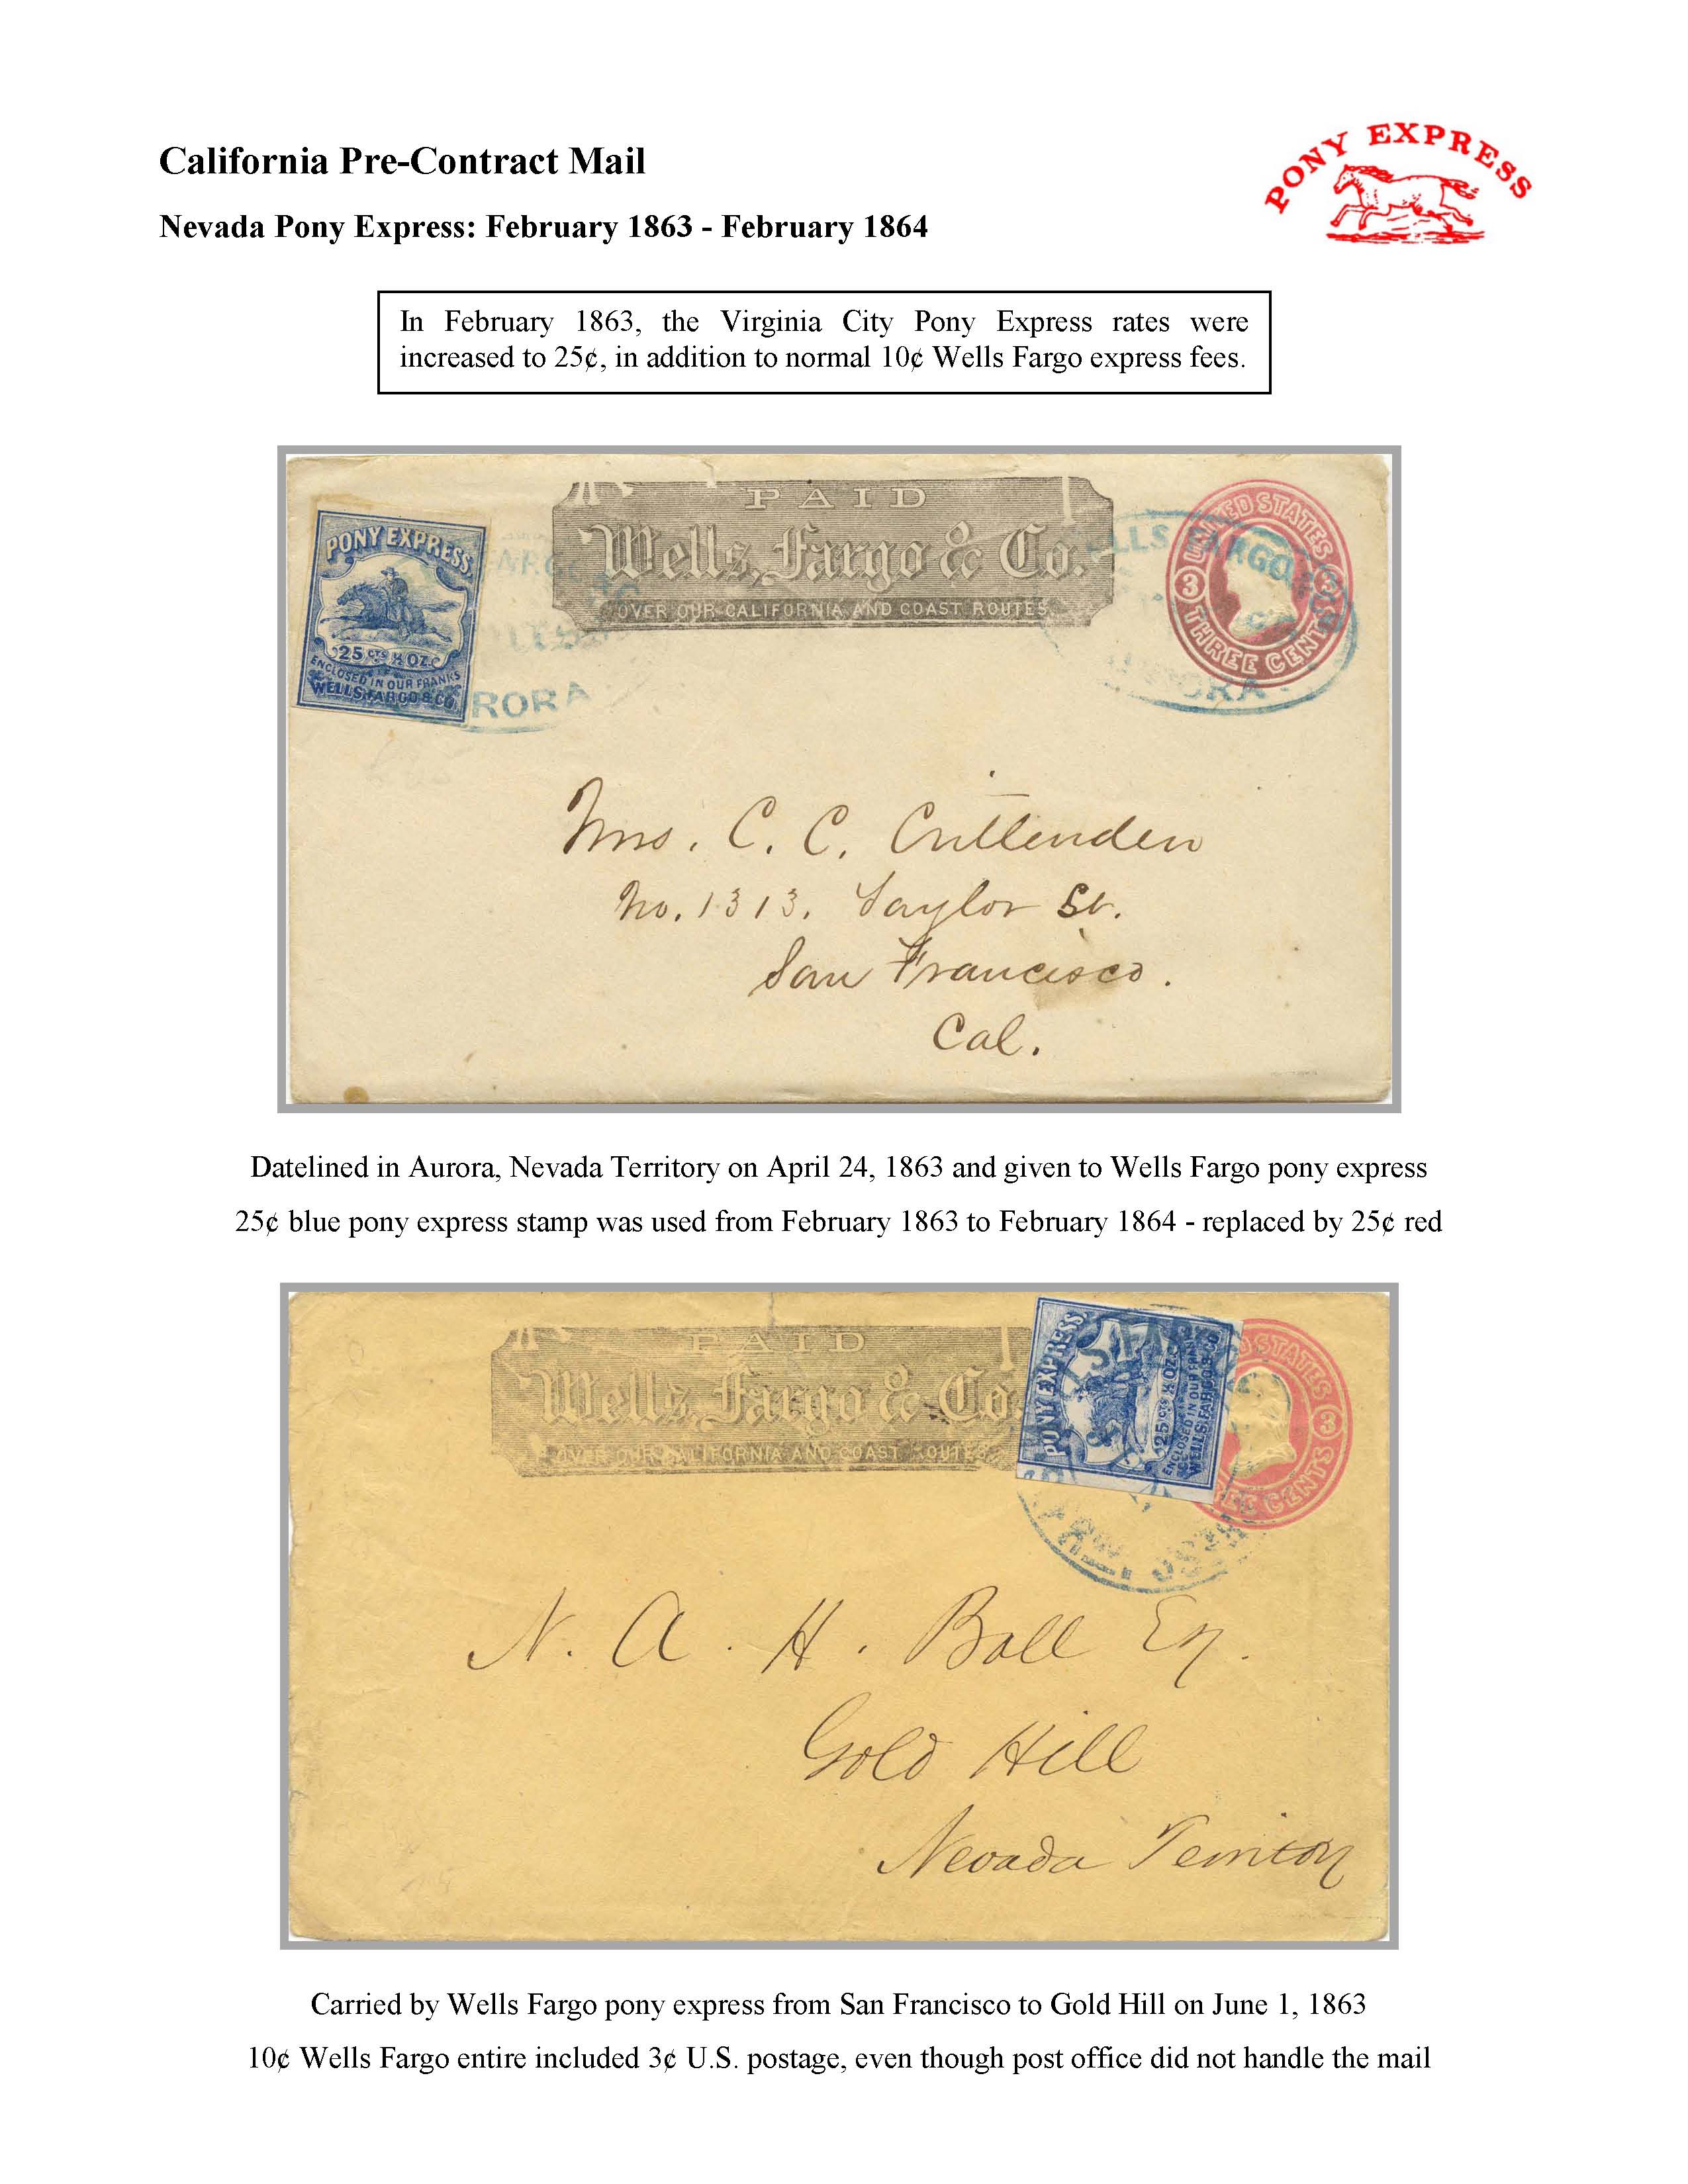 California Pre-Contract Mail
PONY EXPRESS
Nevada Pony Express: February 1863 - February 1864
In February 1863, the Virginia City Pony Express rates were
increased to 25¢, in addition to normal 10¢ Wells Fargo express fees.
PAID
Wells, Fargo & Co.
OVER OUR CALIFORNIA AND COAST ROUTES.
PONY EXPRESS
25 CTS ½ OZ.
ENCLOSED IN OUR FRANKS
WELLS FARGO & CO.
RORA
UNITED STATES
3 3
THREE CENTS
ELLS FARGO
Mrs. C. C. Crittenden
No. 1313. Taylor St.
San Francisco.
Cal.
Datelined in Aurora, Nevada Territory on April 24, 1863 and given to Wells Fargo pony express
25¢ blue pony express stamp was used from February 1863 to February 1864 - replaced by 25¢ red
PAID
Wells, Fargo & Co.
OVER OUR CALIFORNIA AND COAST ROUTES
PONY EXPRESS
25 CTS ½ OZ.
ENCLOSED IN OUR FRANKS
WELLS FARGO & CO.
STATES
3
CENTS
N. A. H. Ball Eq.
Gold Hill
Nevada Territory
Carried by Wells Fargo pony express from San Francisco to Gold Hill on June 1, 1863
10¢ Wells Fargo entire included 3¢ U.S. postage, even though post office did not handle the mail